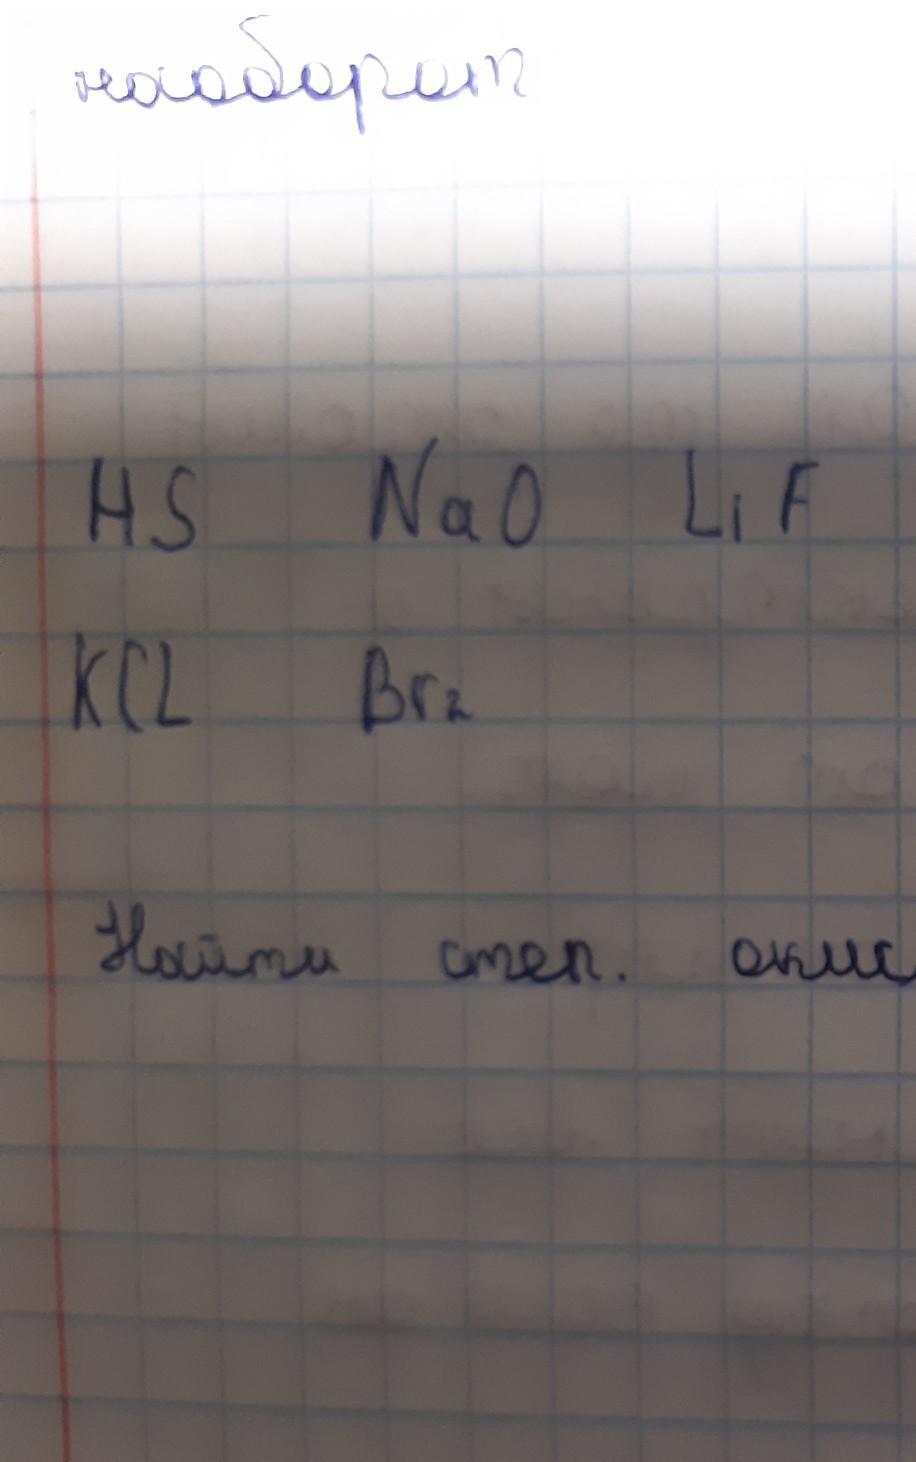 наоборот
HS NaO LiF
KCL Br2
Найти степ. окис